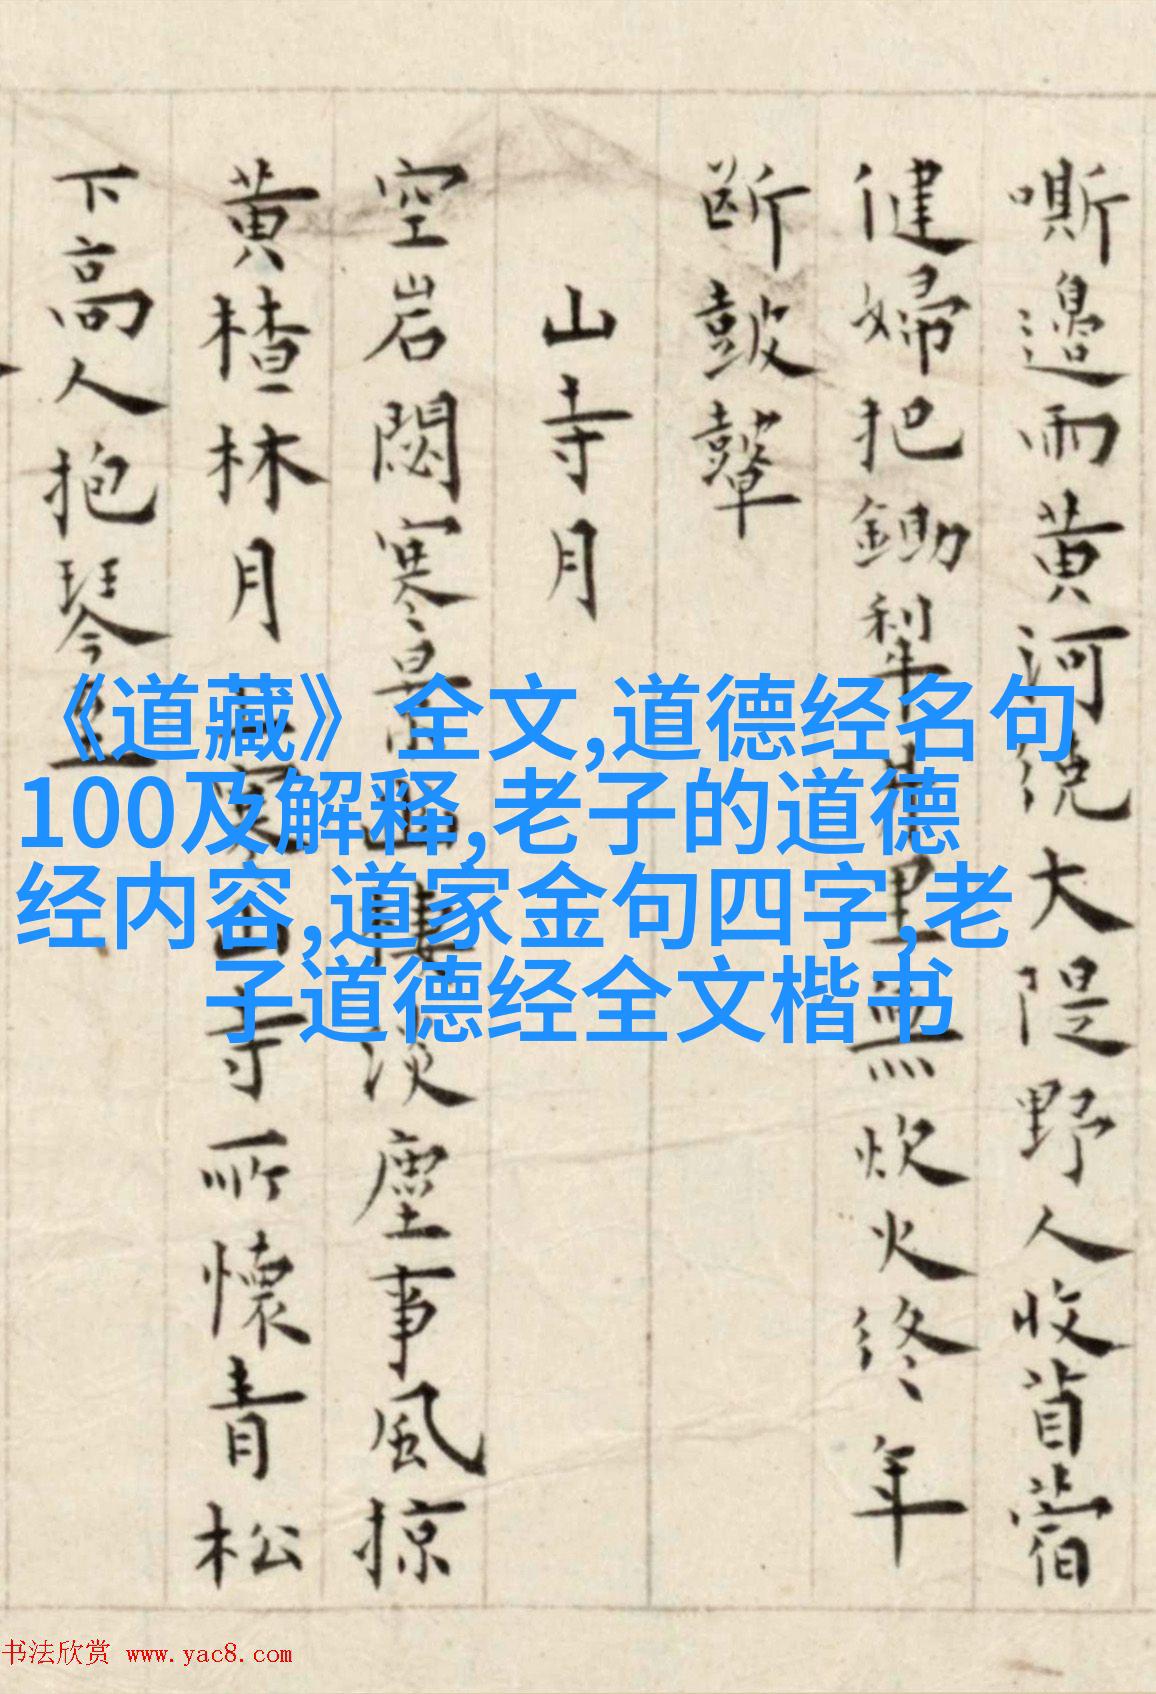 嘶邉雨黄河绕大隄野人收苜蓿
健婦把鋤犁里無炊火終年
斷鼓鼙
山寺月
空岩閟寒淡塵事風掠
黄樝林月寺所懷青松
下高人抱琴
《道藏》全文,道德经名句
100及解释,老子的道德
经内容,道家金句四字,老
子道德经全文楷书
书法欣赏 www.yac8.com